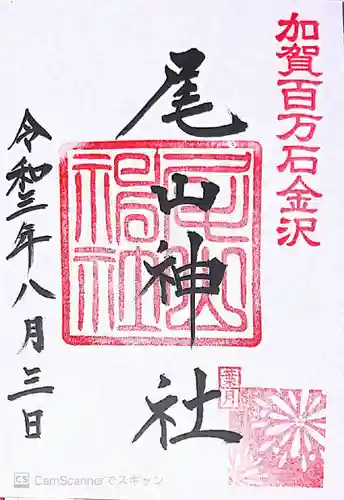 加賀百万石金沢
尾山神社
尾山神社
令和三年八月三日
葉月
CS CamScannerでスキャン